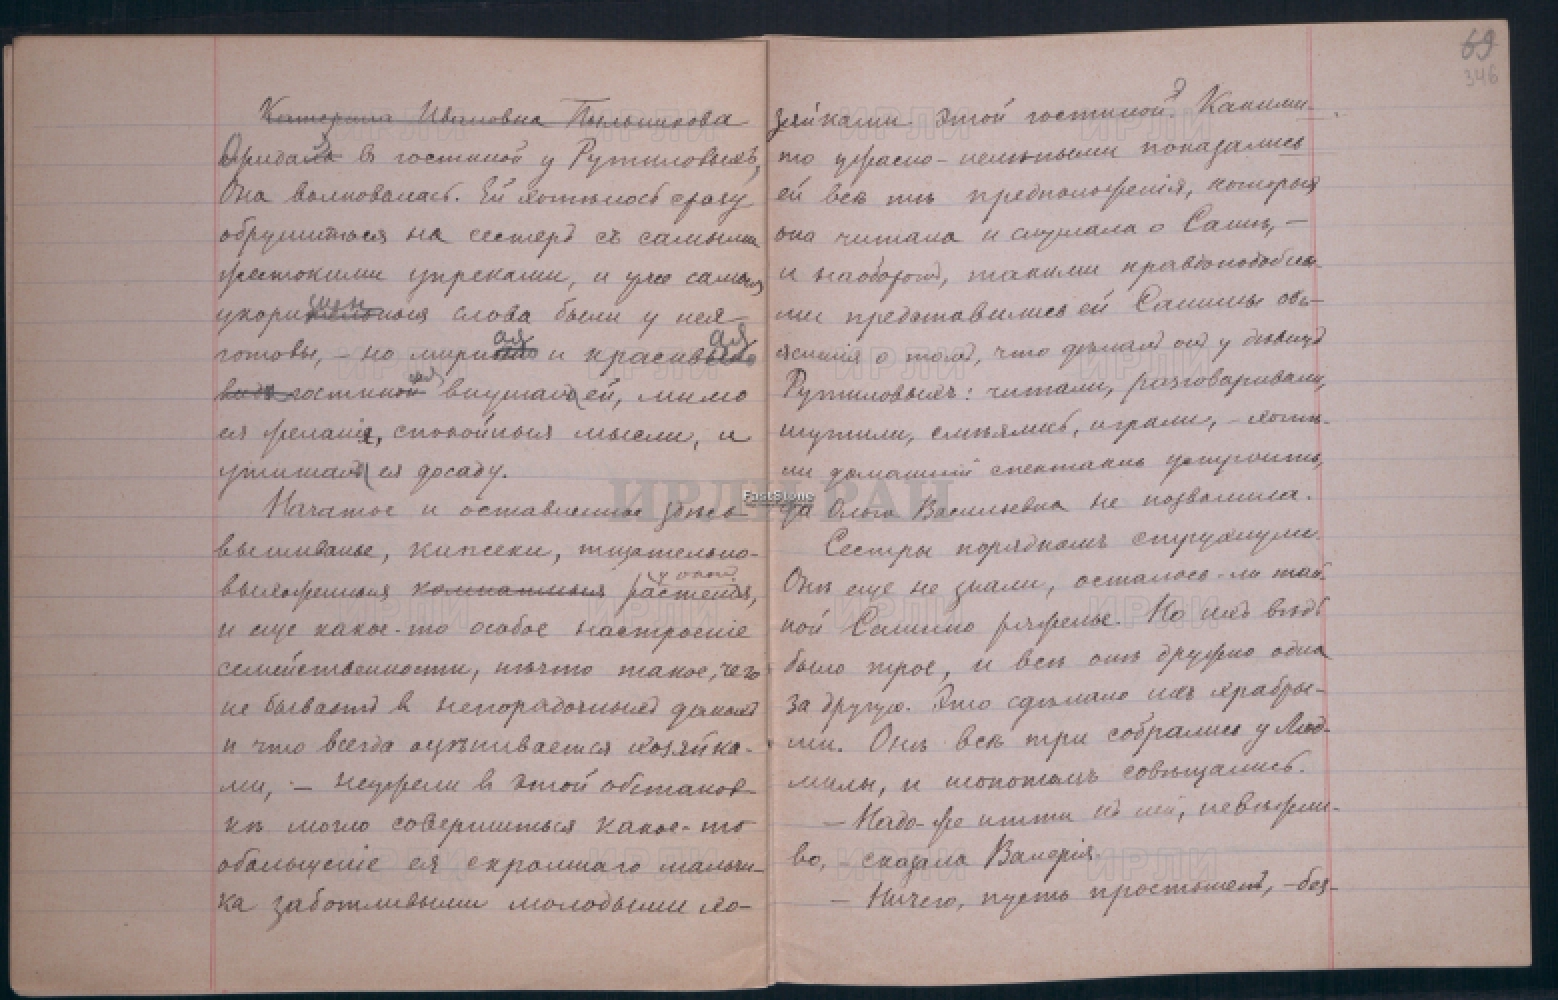 Катерина Ивановна Пыльникова
Ожидала въ гостиной у Рутиловыхъ,
Она волновалась. Ей хотѣлось сразу
обрушиться на сестеръ съ самыми
жестокими упреками, и уже самыя
укоризненныя слова были у нея
готовы, – но мирная и красивая
видъ гостиной внушали ей, мимо
ея желанія, спокойныя мысли, и
утишали ея досаду.
Начатое и оставленное здѣсь
вышиванье, кипсеки, тщательно-
у оконъ
выхоженныя комнатныя растенія,
и еще какое-то особое настроеніе
семейственности, нѣчто такое, чего
не бываетъ в непорядочныхъ домахъ
и что всегда оцѣнивается хозяйка-
ми, – неужели в этой обстанов-
кѣ могло совершиться какое-то
обольщеніе ея скромнаго мальчи-
ка заботливыми молодыми хо-
69
346
зяйками этой гостиной? Какими-
то ужасно-нелѣпыми показались
ей всѣ тѣ предположенія, которыя
она читала и слушала о Сашѣ, –
и наоборотъ, такими правдоподобны-
ми представились ей Сашины объ-
ясненія о томъ, что дѣлалъ он у дѣвицъ
Рутиловыхъ: читали, разговаривали,
шутили, смѣялись, играли, – хотѣ-
ли домашній спектакль устроить,
да Ольга Васильевна не позволила.
Сестры порядкомъ струхнули.
Онѣ еще не знали, осталось-ли тай-
ной Сашино ряженье. Но ихъ вѣдь
было трое, и всѣ онѣ дружно одна
за другую. Это сдѣлало ихъ храбры-
ми. Онѣ всѣ три собрались у Люд-
милы, и шопотомъ совѣщались.
– Надо-же итти къ ней, невѣжли-
во, – сказала Валерія.
– Ничего, пусть простынетъ, – без-
ИРЛИ РАН
FastStone